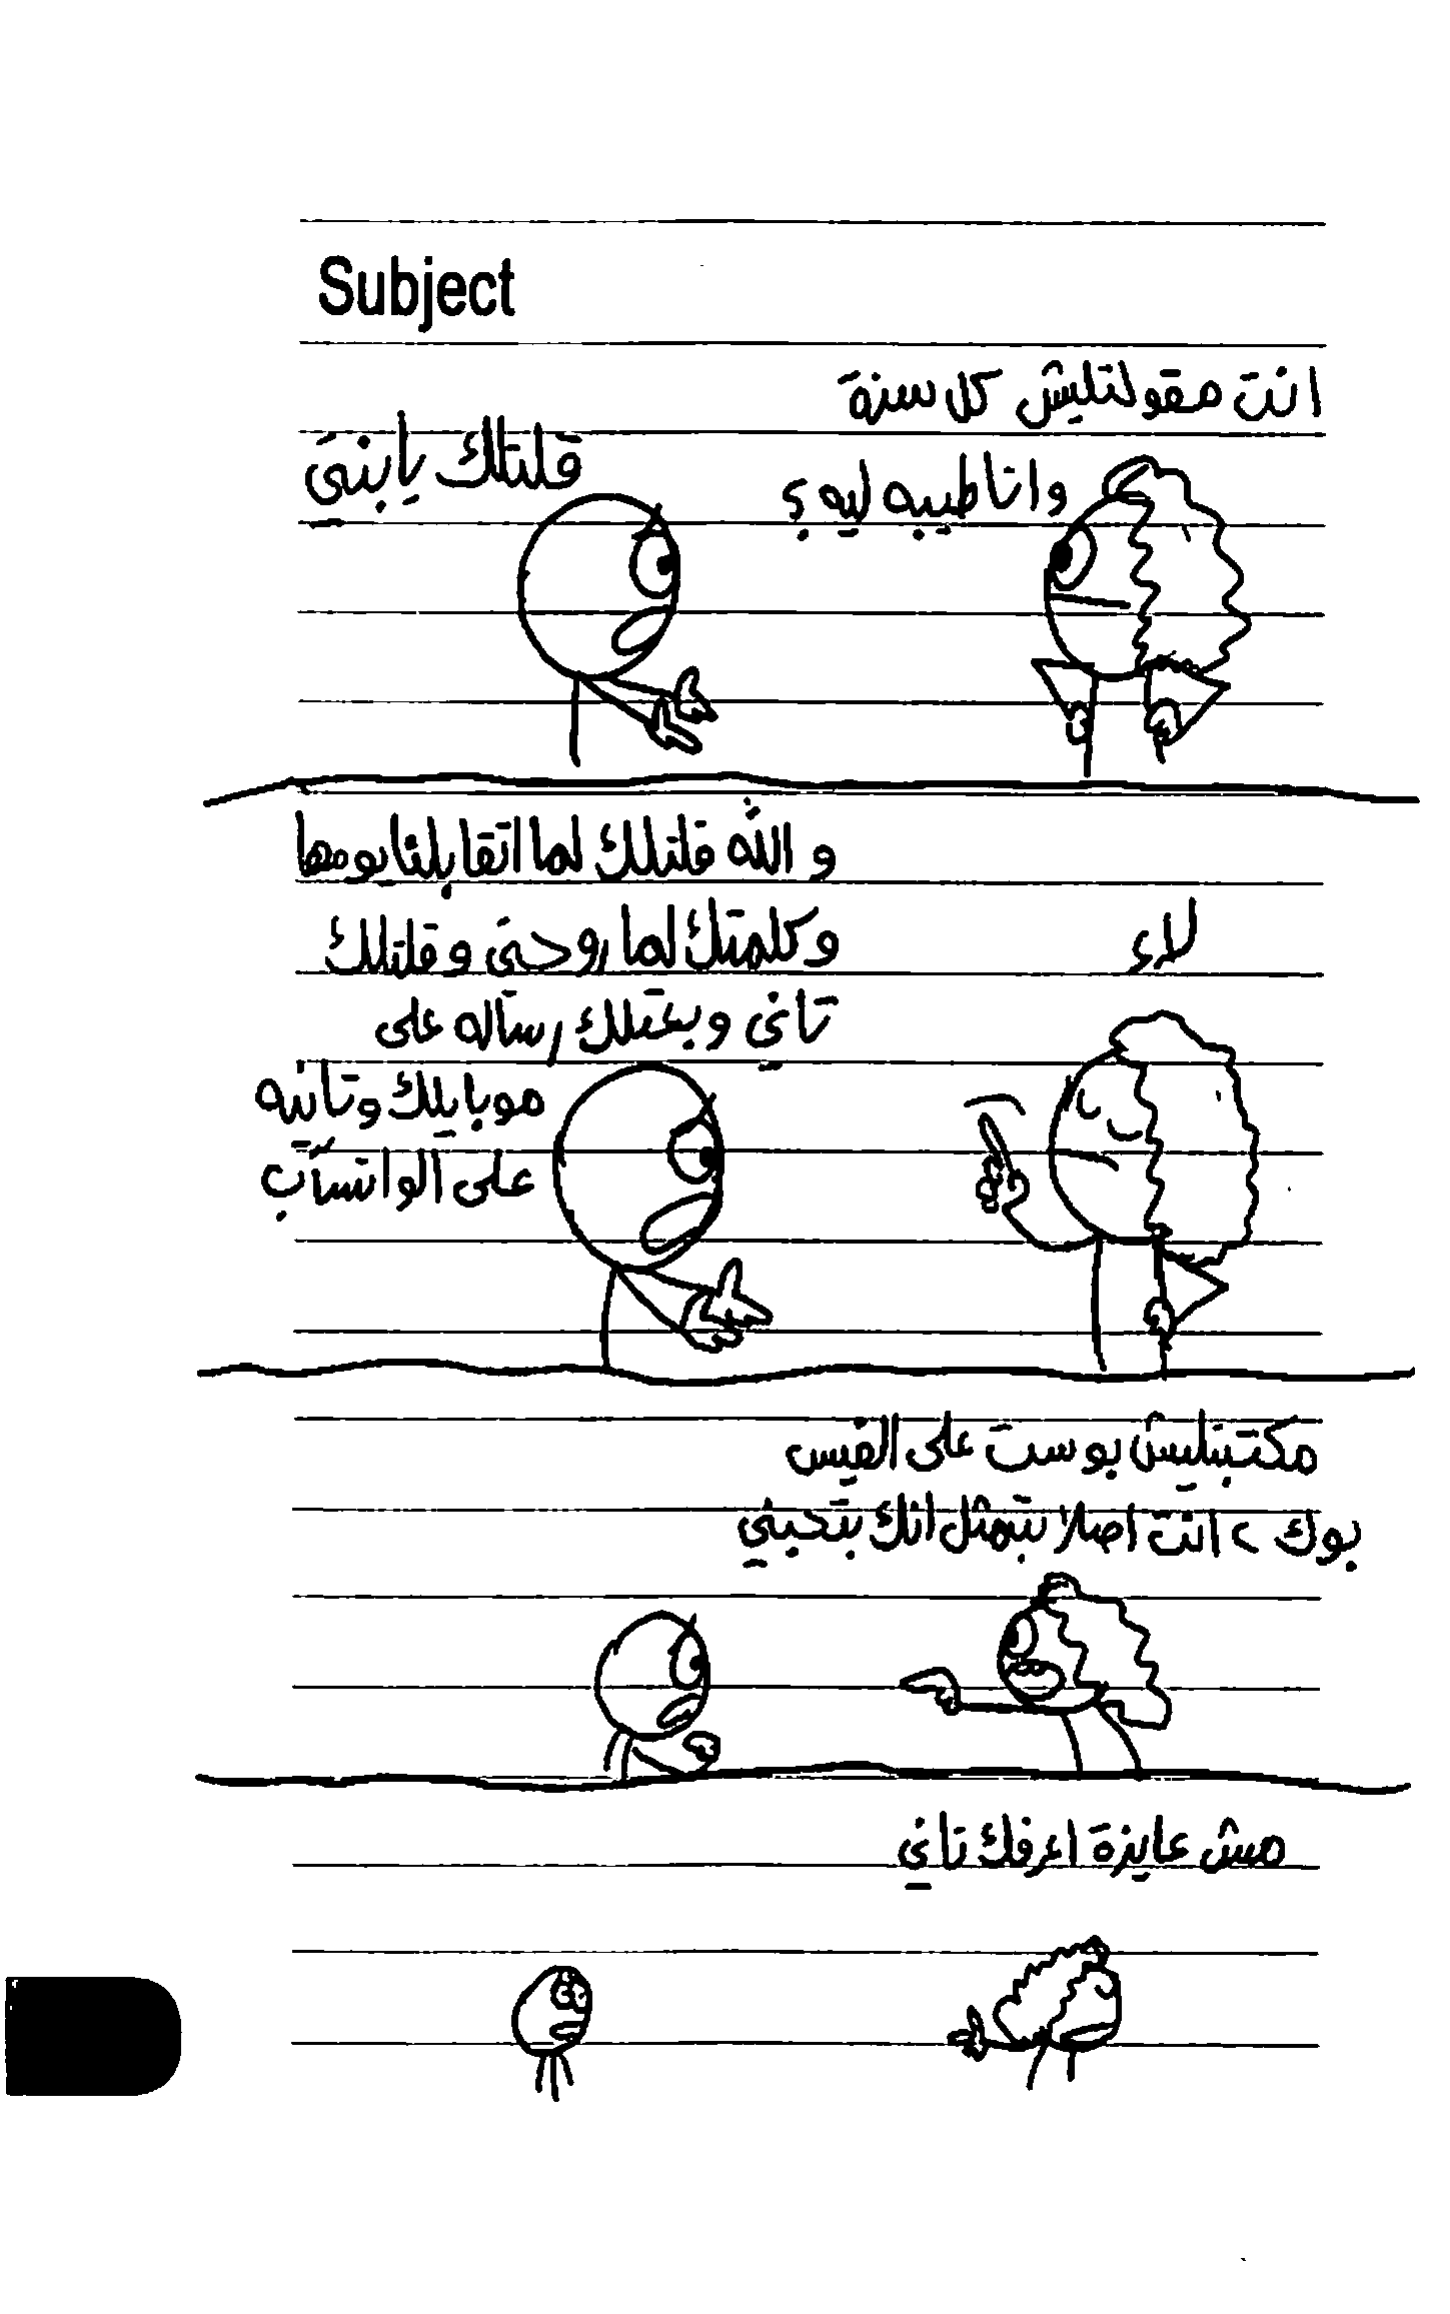 Subject
انت مقولتليش كل سنة
وانا طيبه ليه؟
قلتلك يابنتي
والله قلتلك لما اتقابلنا يومها
وكلمتك لما روحتي وقلتلك
تاني وبعتلك رساله على
موبايلك وتانيه
على الواتساب
لاء
مكتبتليش بوست على الفيس
بوك، انت اصلا بتمثل انك بتحبني
مش عايزة اعرفك تاني